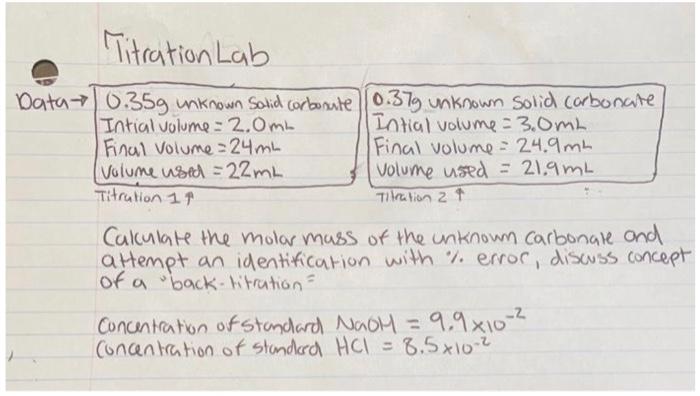 Titration Lab
Data→
0.35g unknown solid carbonate
Intial volume = 2.0mL
Final volume = 24mL
Volume used = 22mL
Titration 1 ↑
0.37g unknown solid carbonate
Intial volume = 3.0mL
Final volume = 24.9mL
Volume used = 21.9mL
Titration 2 ↑
Calculate the molar mass of the unknown carbonate and
attempt an identification with % error, discuss concept
of a "back-titration"
Concentration of standard NaOH = 9.9 x10⁻²
Concentration of standard HCl = 8.5 x10⁻²